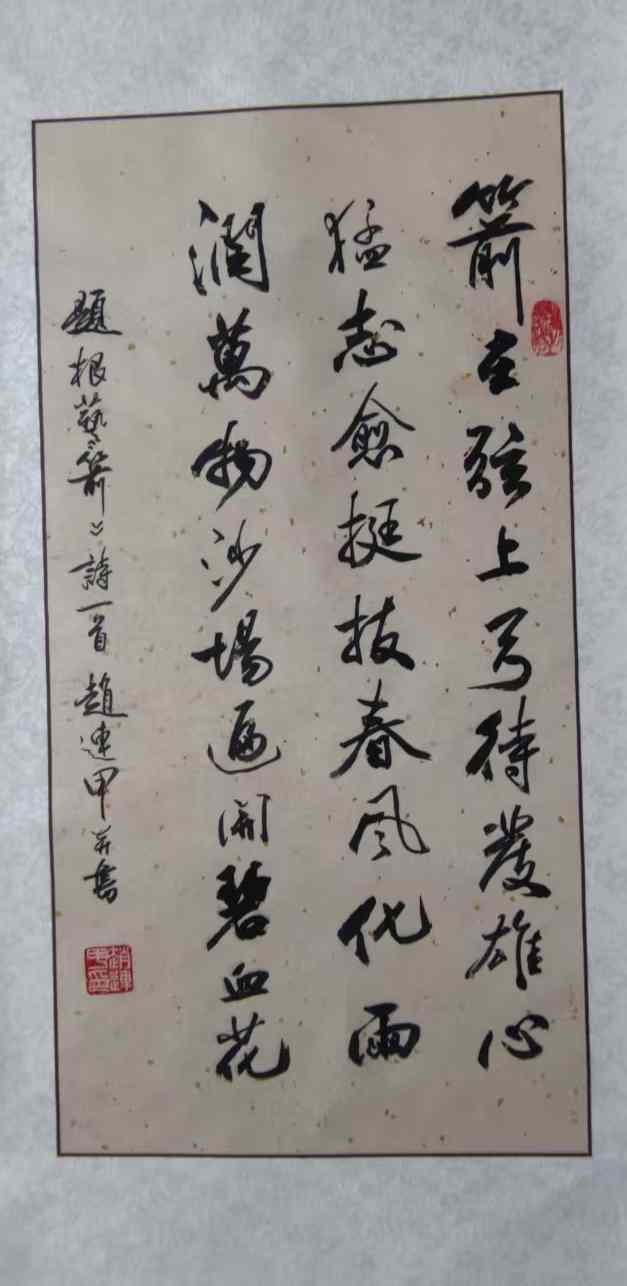 箭在弦上弓待發雄心
猛志愈挺拔春風化雨
潤萬物沙場遍開碧血花
題根藝箭箭詩一首趙連甲并書
趙連甲印